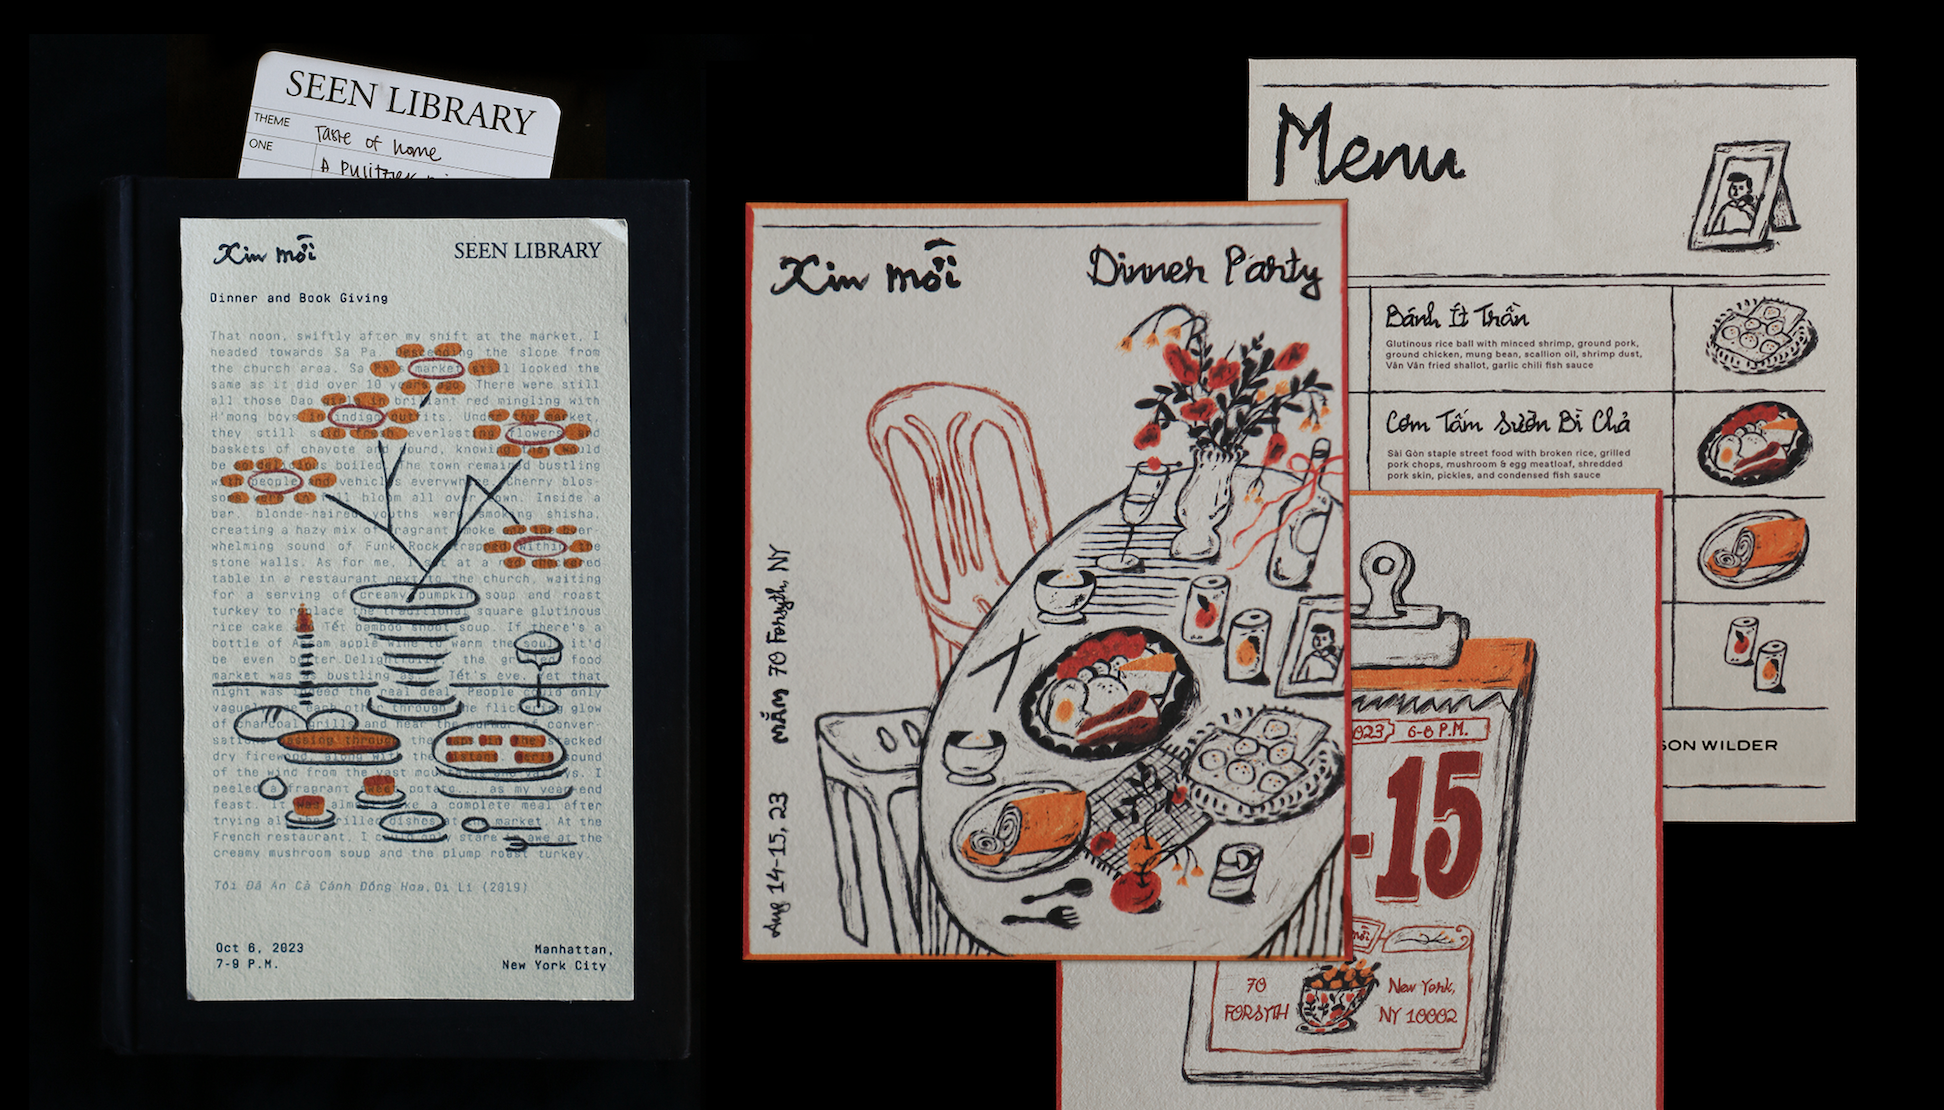 SEEN LIBRARY
THEME Taste of home
ONE A Pulitzer
Xin mời
SEEN LIBRARY
Dinner and Book Giving
That noon, swiftly after my shift at the market, I
headed towards Sa Pa. Descending the slope from
the church area. Sa Pa's market still looked the
same as it did over 10 years ago. There were still
all those Dao girls in brilliant red mingling with
H'mong boys in indigo outfits. Under the market,
they still sold fresh everlasting flowers and
baskets of chayote and gourd, knowing they would
be so delicious boiled. The town remained bustling
with people and vehicles everywhere. Cherry blos-
soms were in full bloom all over town. Inside a
bar, blonde-haired youths were smoking shisha,
creating a hazy mix of fragrant smoke and the over-
whelming sound of Funk Rock trapped within the
stone walls. As for me, I sat at a red checkered
table in a restaurant next to the church, waiting
for a serving of creamy pumpkin soup and roast
turkey to replace the traditional square glutinous
rice cake and Tết bamboo shoot soup. If there's a
bottle of Assam apple wine to warm the soul it'd
be even better. Delightfully, the grilled food
market was as bustling as Tết's eve. Yet that
night was indeed the real deal. People could only
vaguely see each other through the flickering glow
of charcoal grills and hear the murmur of conver-
sations passing through the gaps in the stacked
dry firewood, along with the distant sound
of the wind from the vast mountains and valleys. I
peeled a fragrant sweet potato... as my year-end
feast. It was almost like a complete meal after
trying all the grilled dishes at the market. At the
French restaurant, I could only stare in awe at the
creamy mushroom soup and the plump roast turkey.
Tôi Đã Ăn Cả Cánh Đồng Hoa, Di Li (2019)
Oct 6, 2023
7-9 P.M.
Manhattan,
New York City
Xin mời
Dinner Party
Aug 14-15, 23 MĂM 70 Forsyth, NY
Menu
Bánh Ít Trần
Glutinous rice ball with minced shrimp, ground pork,
ground chicken, mung bean, scallion oil, shrimp dust,
Văn Vân fried shallot, garlic chili fish sauce
Cơm Tấm Sườn Bì Chả
Sài Gòn staple street food with broken rice, grilled
pork chops, mushroom & egg meatloaf, shredded
pork skin, pickles, and condensed fish sauce
SON WILDER
023 6-8 P.M.
-15
mời
70
FORSYTH
New York,
NY 10002